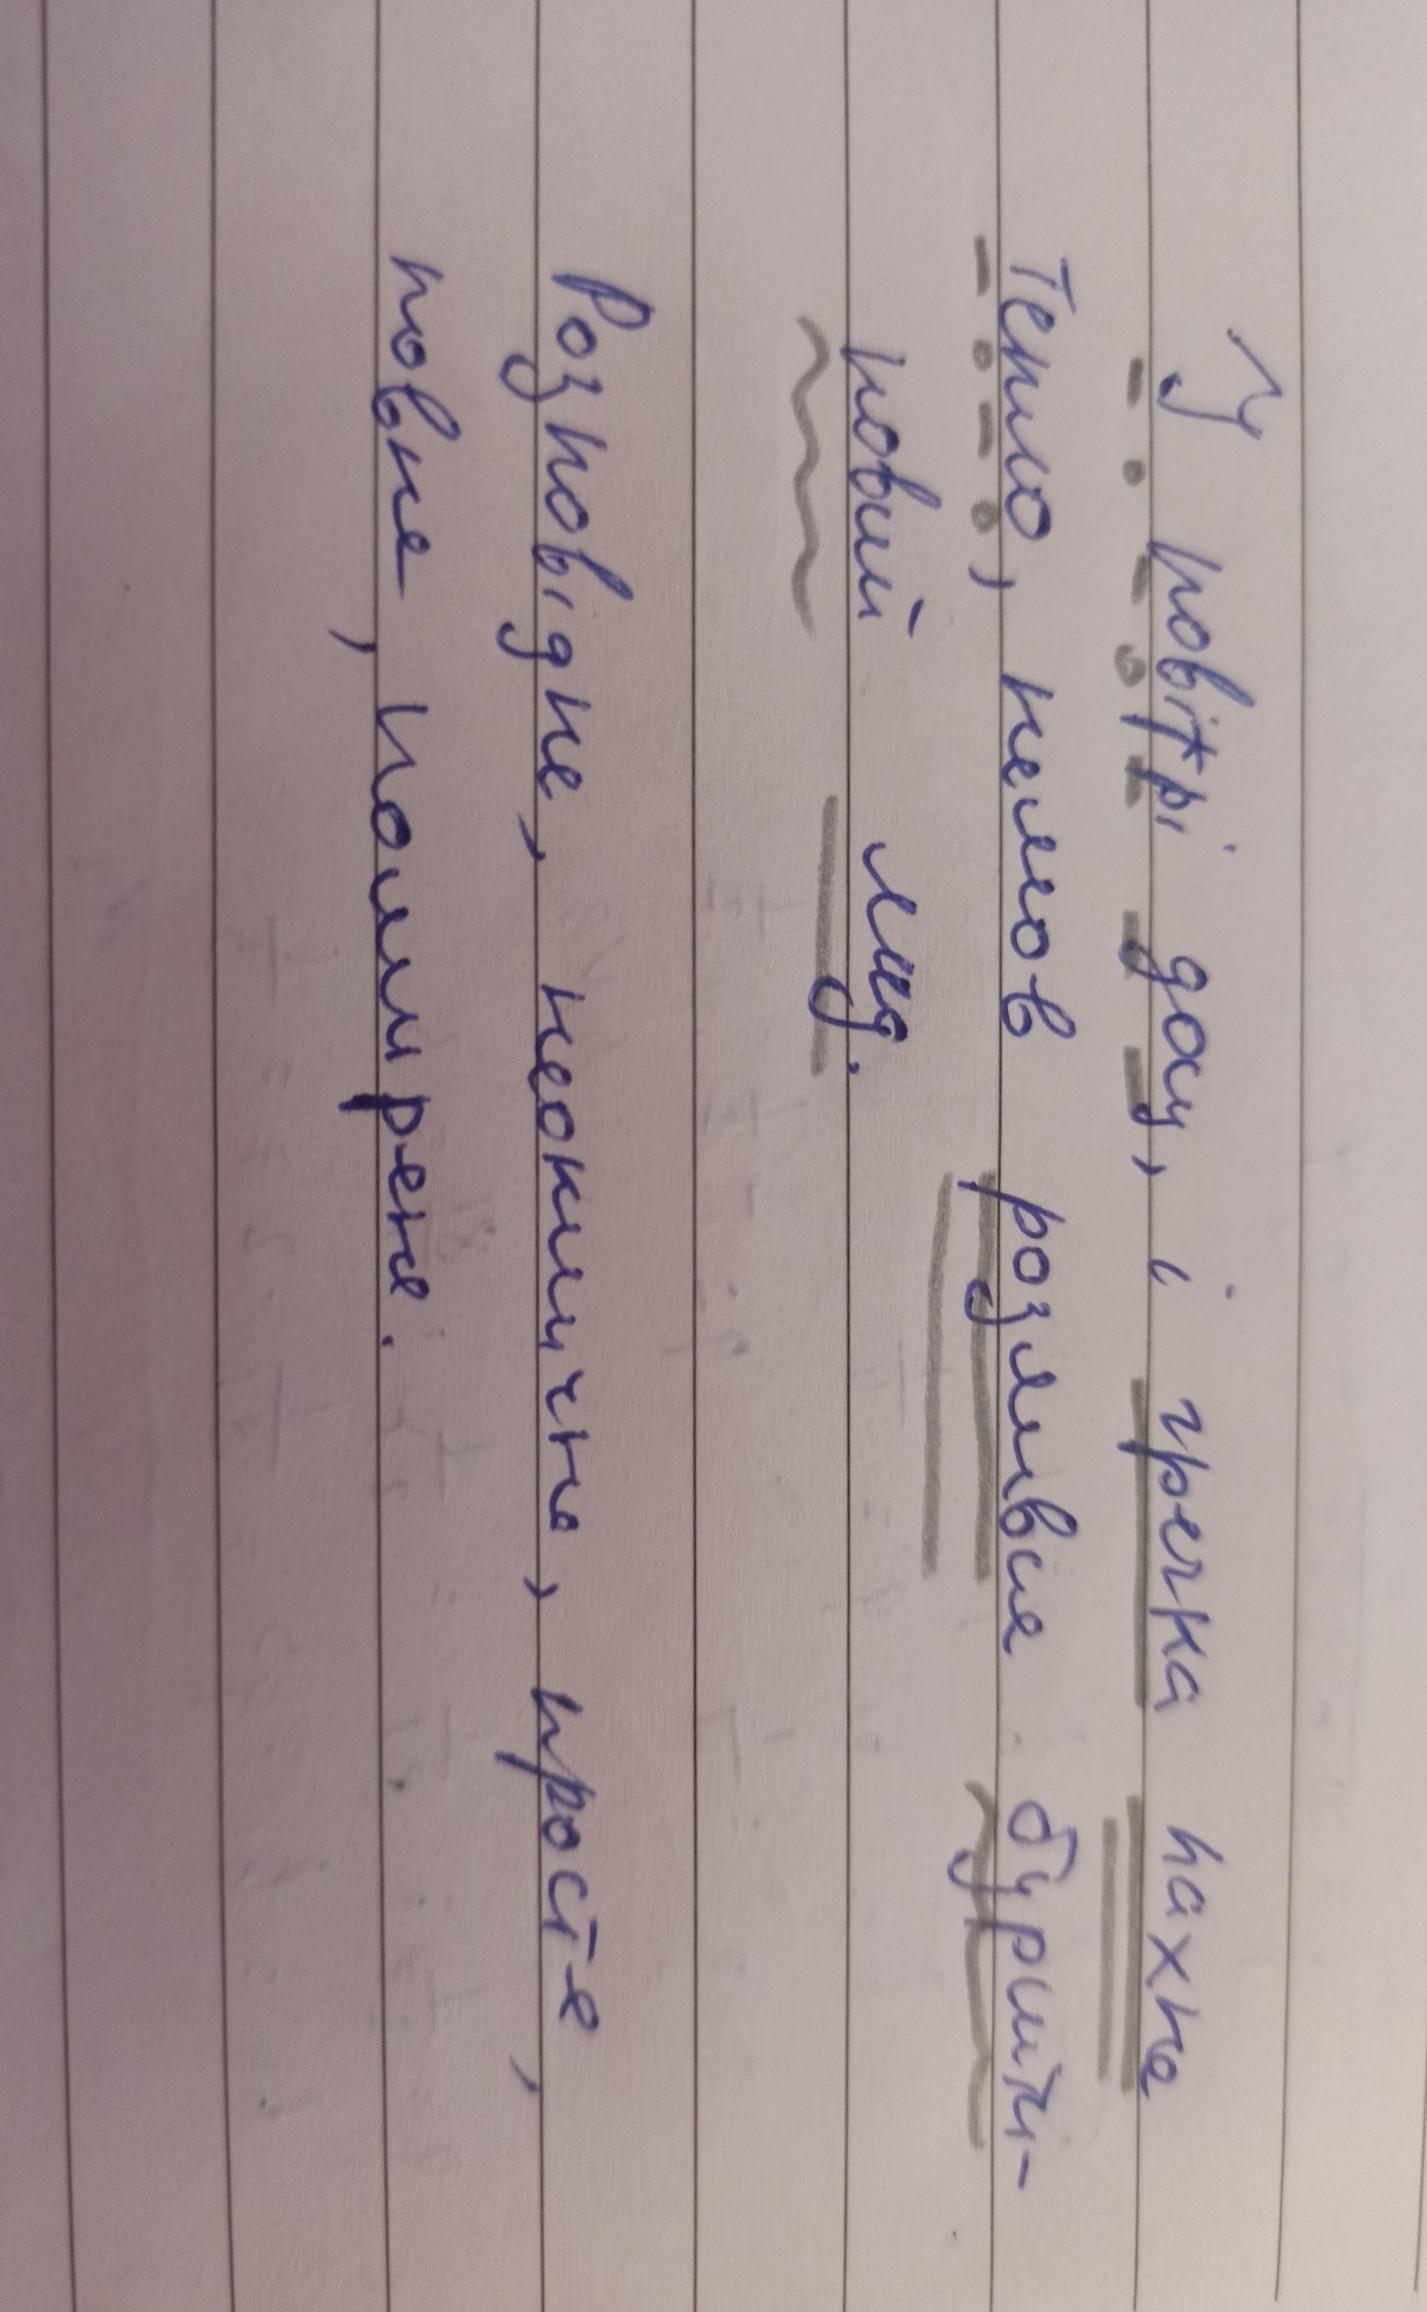 У повітрі дощ, і гречка пахне
тепло, немов розлився буршти-
новий мед.
Розповідне, неокличне, просте,
повне, поширене.